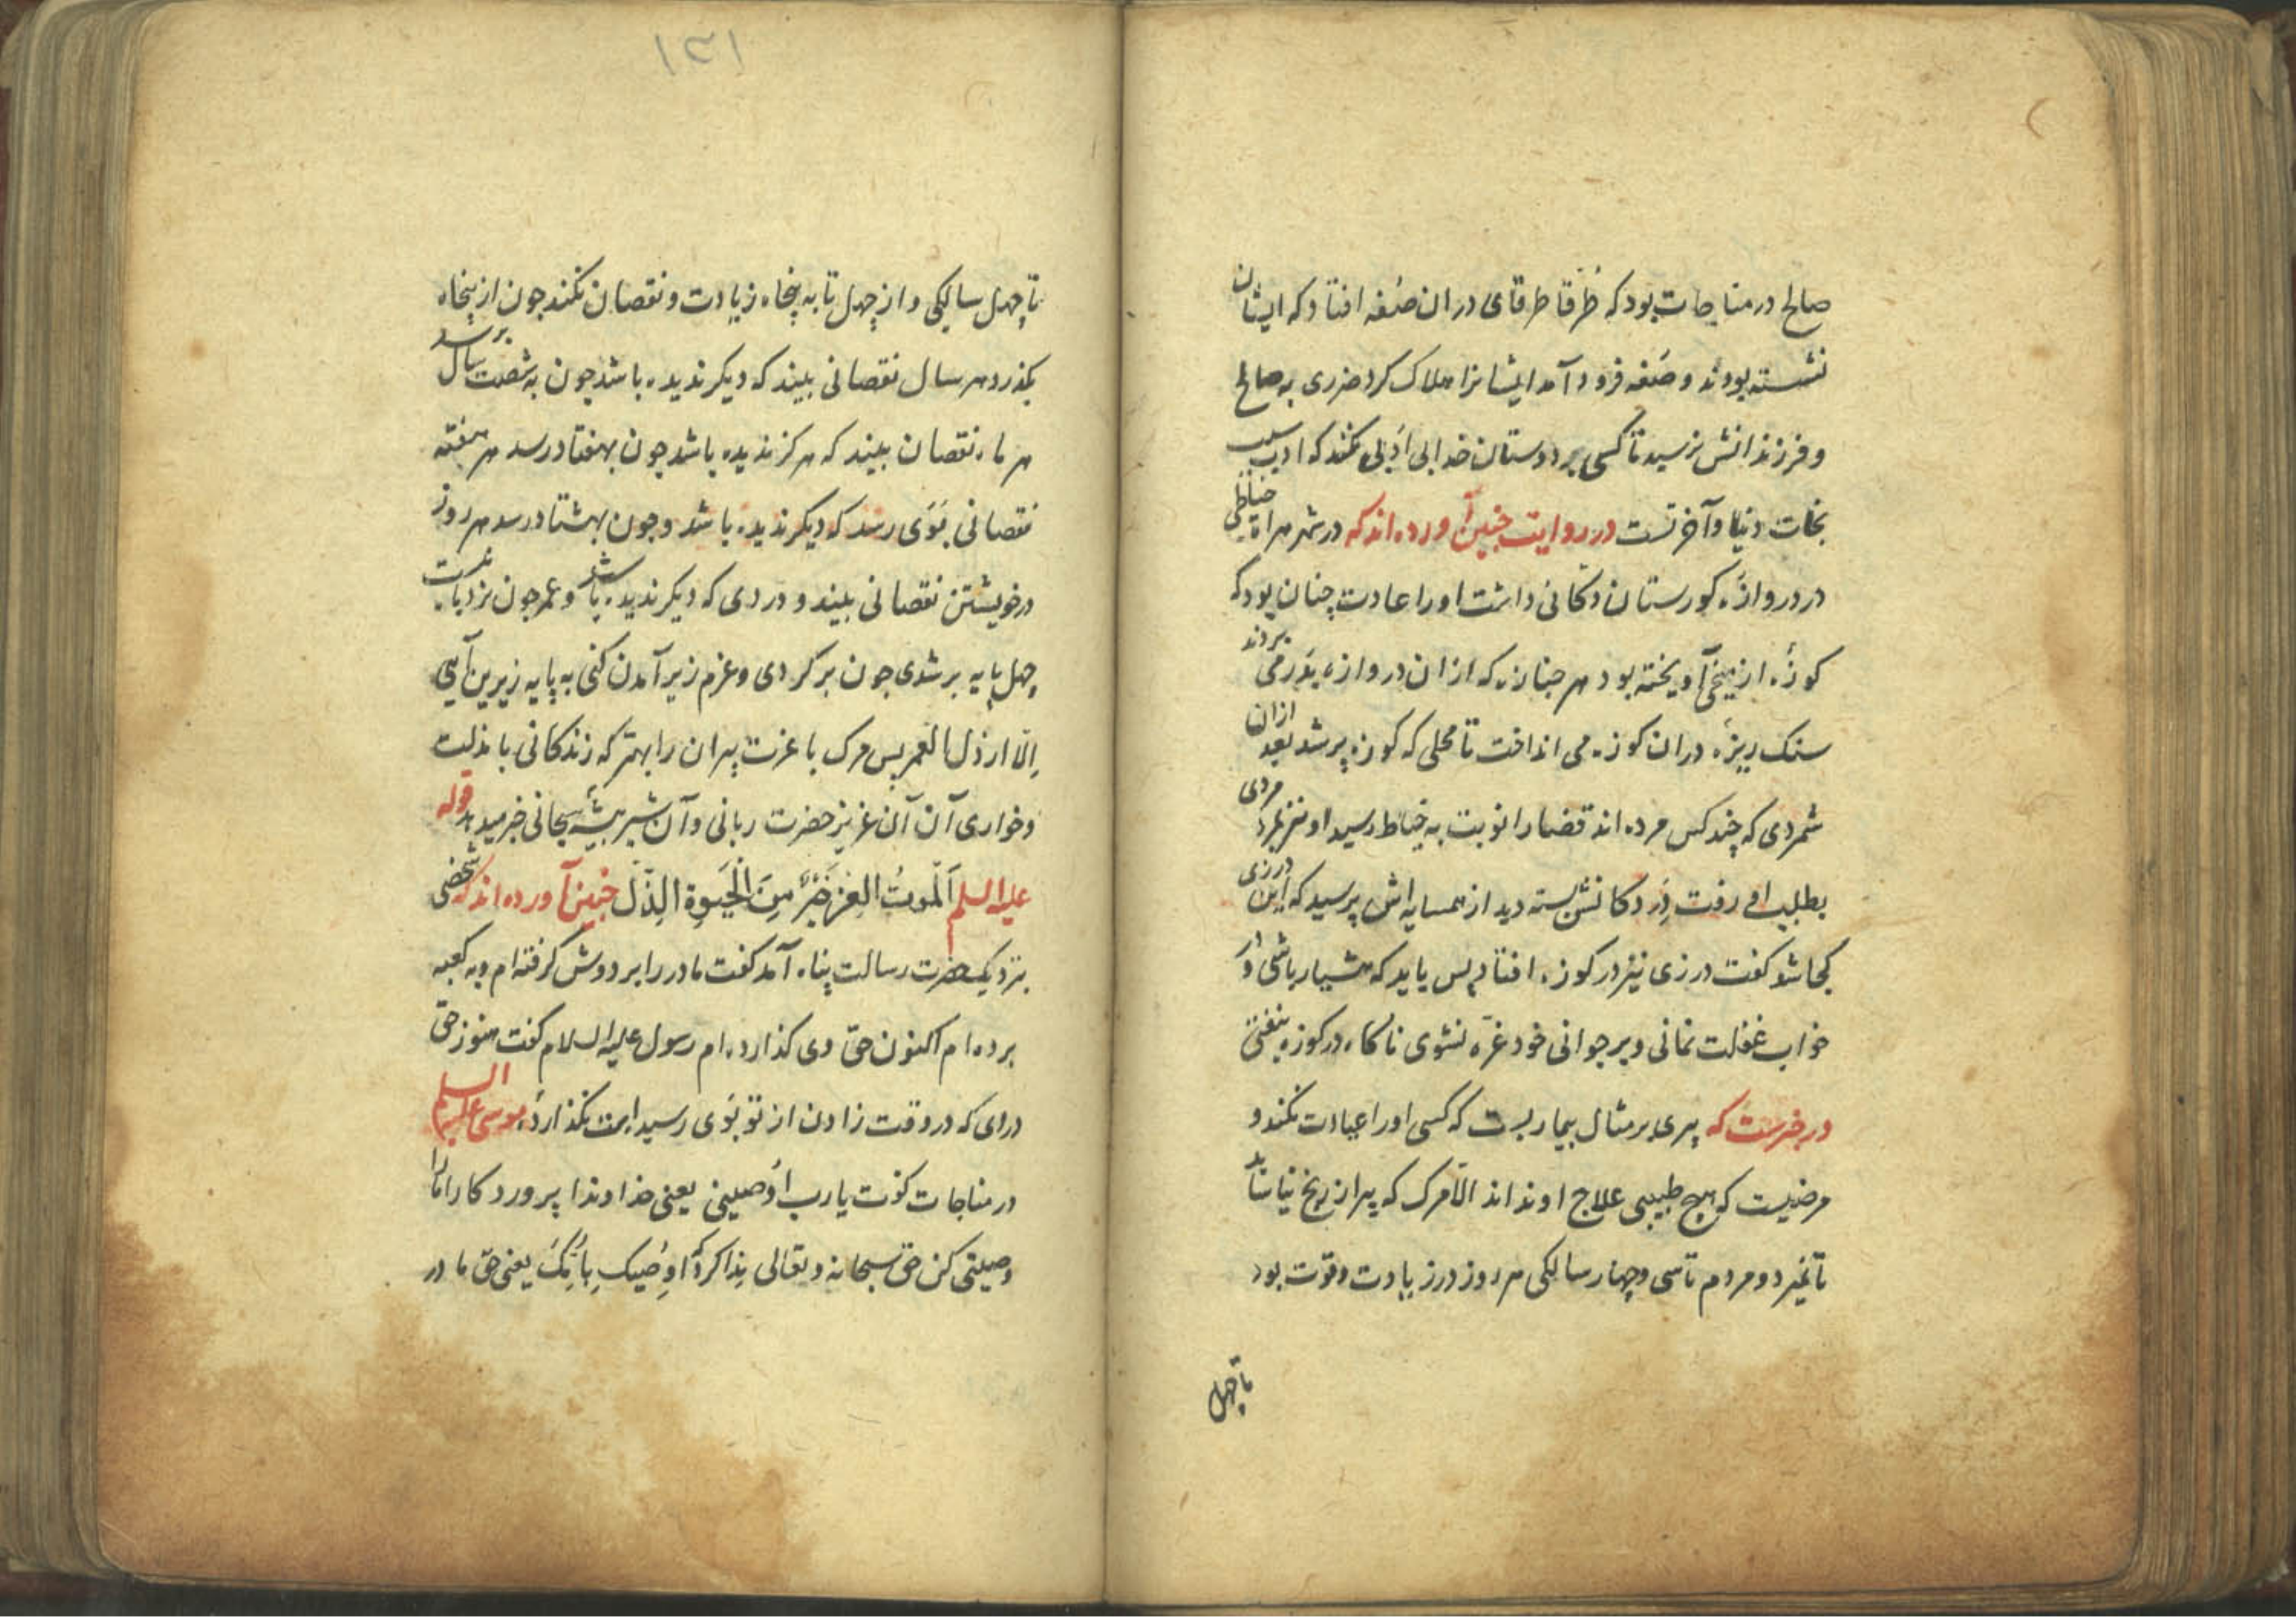 صالح در مناجات بود که طرقا طرقای دران صفه افتاد که ایشان
نشسته بودند و صفه فرود آمد ایشانرا هلاک کرد ضرری به صالح
و فرزندانش نرسید تا کسی بر دوستان خدا بی ادبی نکند که ادب سبب
نجات دنیا و آخرتست در روایت چنین آورده اند که در شهر هراة خیاطی
در دروازهٔ کورستان دکانی داشت او را عادت چنان بود که
کوزهٔ از میخی آویخته بود هر جنازه که ازان دروازه بدر می بردند
سنک ریزهٔ دران کوزه می انداخت تا محلی که کوزه پر شد بعد ازان
شمردی که چند کس مرده اند قضا را نوبت به خیاط رسید او نیز بمرد مردی
بطلب او رفت در دکانش بسته دید از همسایه اش پرسید که این درزی
کجا شد کفت درزی نیز در کوزه افتاد پس باید که هشیار باشی و در
خواب غفلت نمانی و بر جوانی خود غره نشوی ناکاه در کوزه بیفتی
در خبرست که پیری بر مثال بیماریست که کسی او را عیادت نکند و
مرضیست که هیچ طبیبی علاج او نداند الا مرک که پیر ازین رنج نیاساید
تا نمیرد و مردم تا سی و چهار سالکی هر روز در زیادت و قوت بود
تا چهل
۱۳۱
تا چهل سالیکی و از چهل تا به پنجاه زیادت و نقصان نکند چون از پنجاه
بکذرد هر سال نقصانی بیند که دیکر ندیده باشد چون به شصت سال برسد
هر ماه نقصان بیند که هرکز ندیده باشد چون بهفتاد رسد هر هفته
نقصانی بوی رسد که دیکر ندیده باشد و چون بهشتاد رسد هر روز
در خویشتن نقصانی بیند و دردی که دیکر ندیده باشد و عمر چون نردبانست
چهل پایه بر شدی چون بر کردی و عزم زیر آمدن کنی به پایه زیرین آیی
الا ارذل العمر پس مرک با عزت پیران را بهتر که زندکانی با مذلت
و خواری آن آن عزیز حضرت ربانی و آن شیر بیشهٔ سبحانی خبر میدهد قوله
علیه السلم اَلْموتُ العِز خَیْرٌ مِنَ الْحَیَوةِ الذِّلّ چنین آورده اند که شخصی
بنزدیک حضرت رسالت پناه آمد کفت مادر را بر دوش کرفته ام و به کعبه
برده ام اکنون حق وی کذارده ام رسول علیه السلام کفت هنوز حق
دردی که در وقت زادن از تو بوی رسید است نکذاردهٔ موسی علیه السلم
در مناجات کفت یا رب اوصینی یعنی خداوندا پروردکارا مرا
وصیتی کن حق سبحانه و تعالی ندا کرد که اوصیک بِاُمِّکَ یعنی حق مادر